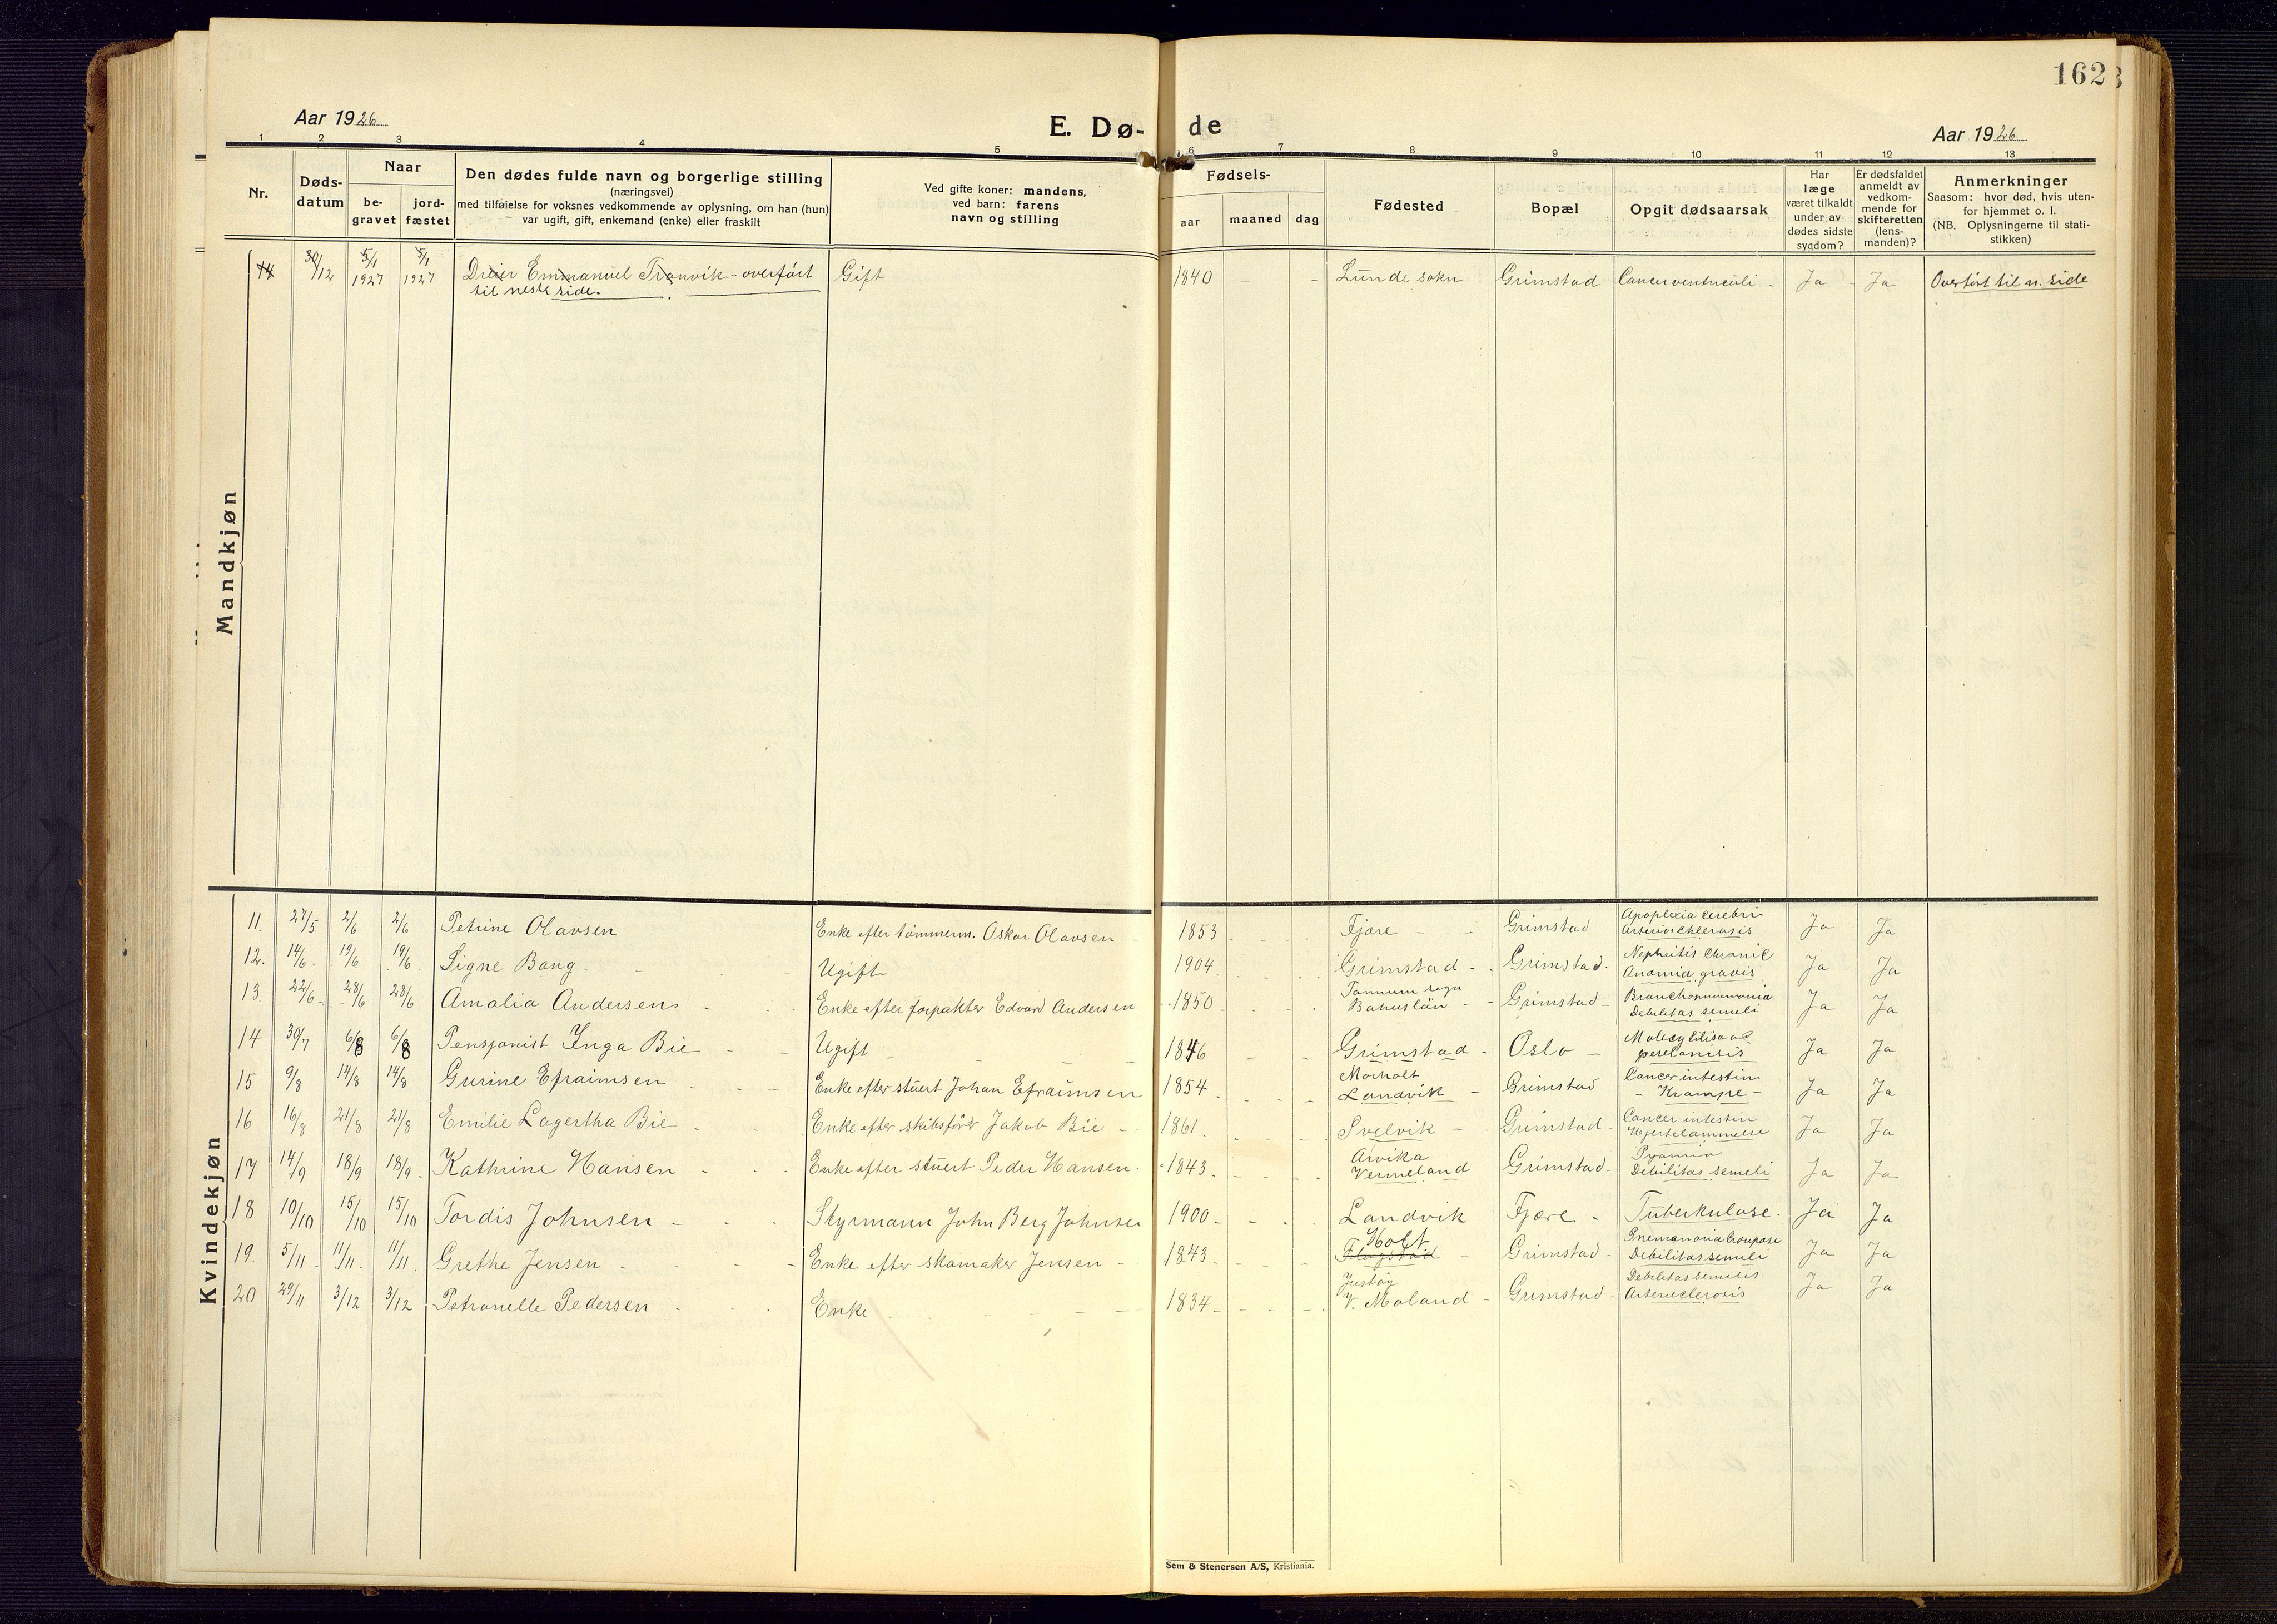 162
Aar 1926
E. Dø- de
Aar 1926
1 2 3 4 5 6 7 8 9 10 11 12 13
Nr.
Døds-
datum
Naar
be-
gravet
jord-
fæstet
Den dødes fulde navn og borgerlige stilling
(næringsvei)
med tilføielse for voksnes vedkommende av oplysning, om han (hun)
var ugift, gift, enkemand (enke) eller fraskilt
Ved gifte koner: mandens,
ved barn: farens
navn og stilling
Fødsels-
aar
maaned
dag
Fødested
Bopæl
Opgit dødsaarsak
Har
læge
været tilkaldt
under av-
dødes sidste
sygdom?
Er dødsfaldet
anmeldt av
vedkom-
mende for
skifteretten
(lens-
manden)?
Anmerkninger
Saasom: hvor død, hvis uten-
for hjemmet o. l.
(NB. Oplysningerne til stati-
stikken)
Mandkjøn
14 30/12 5/1 1927 5/1 1927 Emmanuel Tronvik - overført til neste side. Gift 1840 - - Lunde sokn Grimstad Cancer ventriculi - Ja - Ja Overført til n. side
Kvindekjøn
11. 27/5 2/6 2/6 Petrine Olavsen Enke efter tømmerm. Oskar Olavsen 1853 Fjære - - Grimstad Apoplexia cerebri Ja Ja
12. 14/6 19/6 19/6 Signe Bang - Ugift 1904 Grimstad - Grimstad. Nephritis Chronic Anamia gravis Ja Ja
13. 22/6 28/6 28/6 Amalia Andersen - Enke efter forpakter Edvard Andersen 1850 Tannum sogn Bahuslän - Grimstad - Bronchopneumonia Debilitas semeli Ja Ja
14 30/7 6/8 6/8 Pensjonist Inga Bie - Ugift - 1846 Grimstad - Oslo - Ja Ja
15 9/8 14/8 14/8 Gurine Efraimsen - Enke efter stuert Johan Efraimsen 1854 Morholt Landvik - Grimstad Cancer intestin - Krampe - Ja Ja
16 16/8 21/8 21/8 Emilie Lagertha Bie - Enke efter skibsfører Jakob Bie - 1861 Svelvik - Grimstad - Cancer intestin Hjertelammelse Ja Ja
17 14/9 18/9 18/9 Kathrine Hansen - Enke efter stuert Peder Hansen. 1843 Arvika Vermeland Grimstad - Pyamia Debilitas semeli Ja Ja
18 10/10 15/10 15/10 Tordis Johnsen - Styrmann John Berg Johnsen 1900 - Landvik Fjære - Tuberkulose. Ja Ja
19. 5/11 11/11 11/11 Grethe Jensen - Enke efter skomaker Jensen - 1843 Holt Flagstad - Grimstad - Debilitas semeli Ja Ja
20 29/11 3/12 3/12 Petronelle Pedersen Enke 1834 - Justøy V. Moland - Grimstad - Debilitas semilis Ja Ja
Sem & Stenersen A/S, Kristiania.